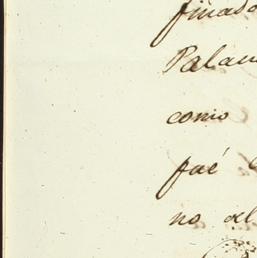 finado
Palan
como
fué
no al